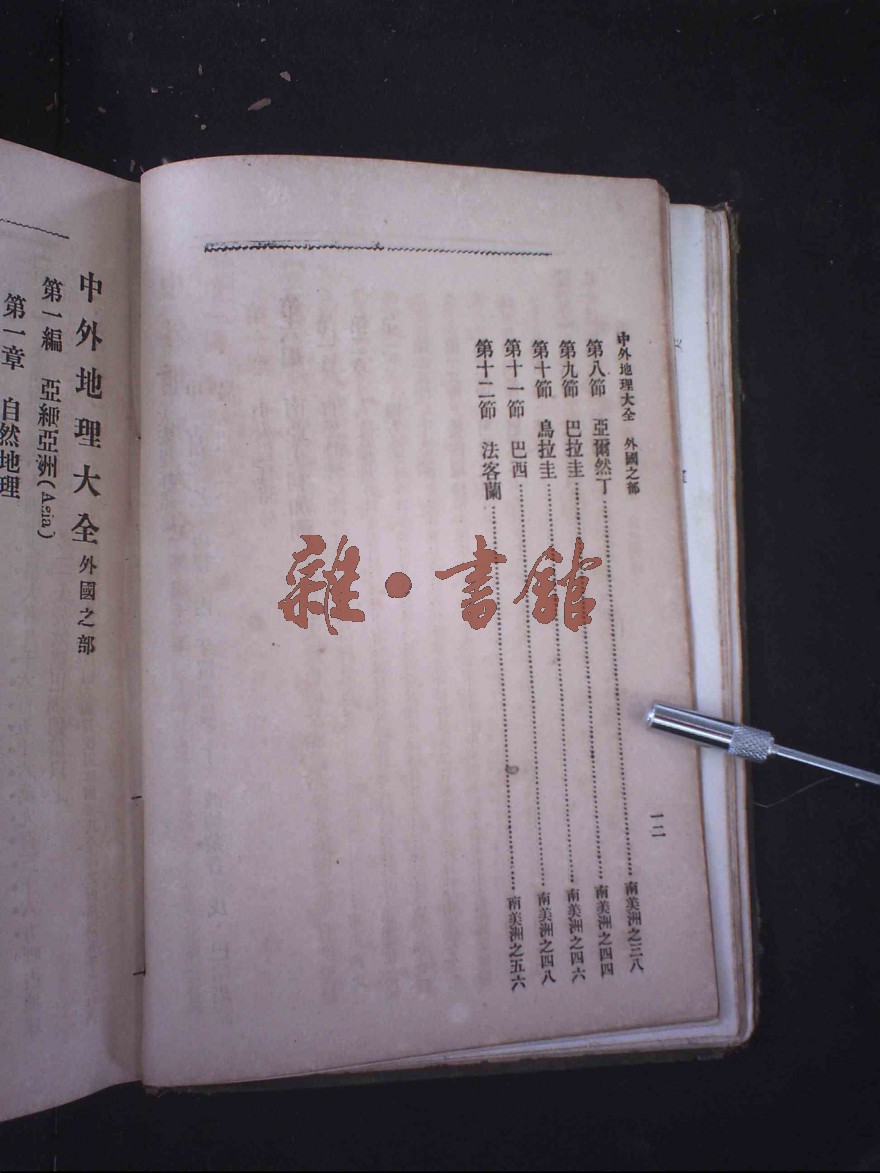 中外地理大全　外國之部
第八節　亞爾然丁……南美洲之三八
第九節　巴拉圭……南美洲之四四
第十節　烏拉圭……南美洲之四六
第十一節　巴西……南美洲之四八
第十二節　法客蘭……南美洲之五六
一二
中外地理大全外國之部
第一編　亞細亞洲(Asia)
第一章　自然地理
雜・書館